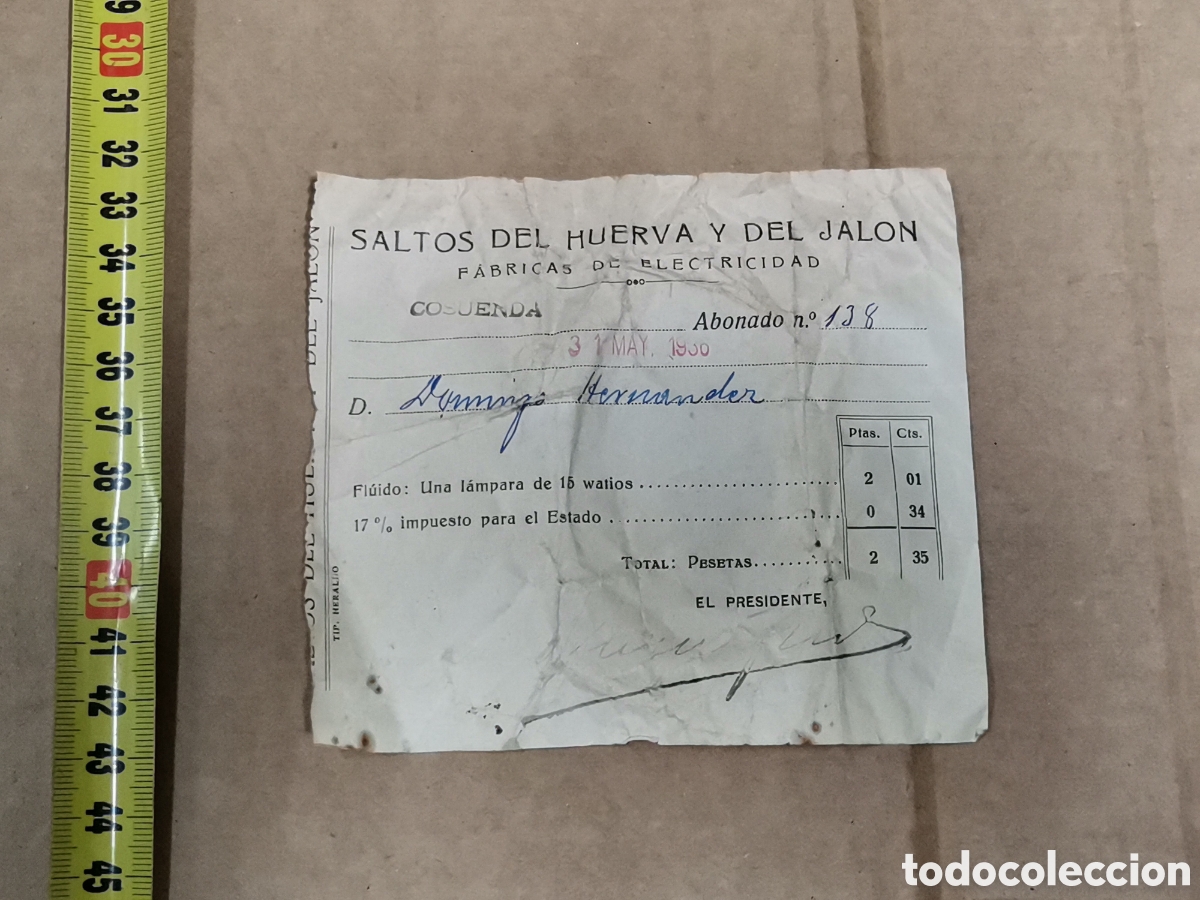 SALTOS DEL HUERVA Y DEL JALON
FÁBRICAS DE ELECTRICIDAD
COSUENDA
Abonado n.º 138
31 MAY. 1936
D. Domingo Hernandez
Ptas. Cts.
Flúido: Una lámpara de 15 watios 2 01
17 % impuesto para el Estado 0 34
TOTAL: PESETAS 2 35
EL PRESIDENTE,
TIP. HERALDO
DEL JALON
29
30
31
32
33
34
35
36
37
38
39
40
41
42
43
44
45
todocoleccion